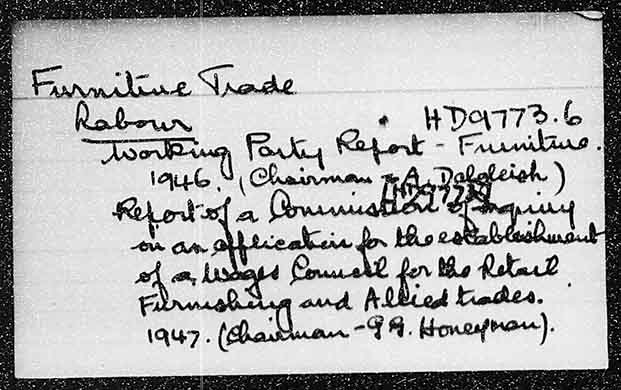 Furniture Trade
Labour
HD9773.6
Working Party Report - Furniture.
1946. (Chairman - A. Dalgleish)
Report of a Commission of inquiry
on an application for the establishment
of a Wages Council for the Retail
Furnishing and Allied trades.
1947. (Chairman - G G. Honeyman).